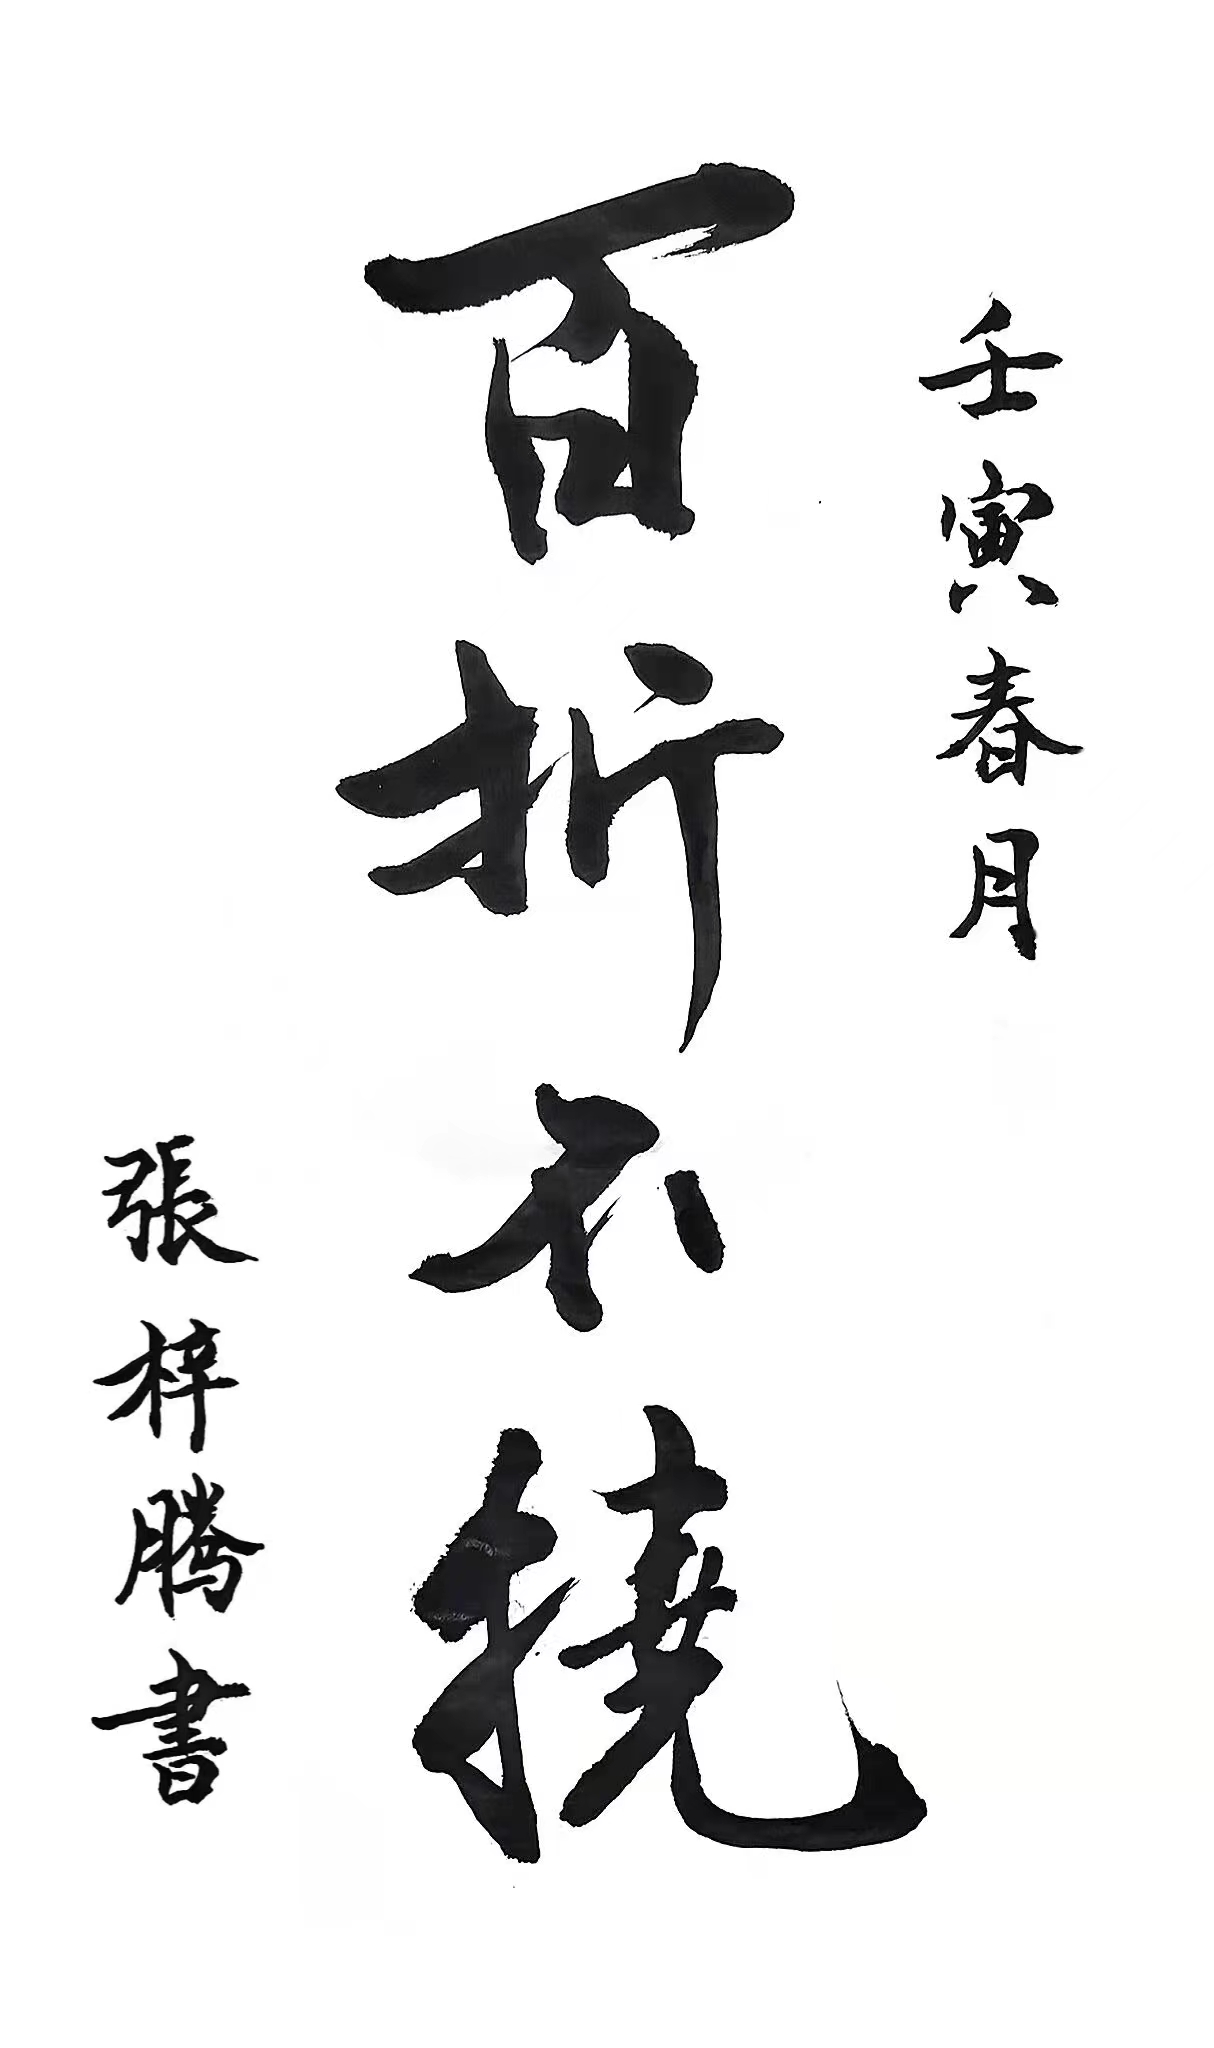 壬寅春月
百折不撓
張梓騰書